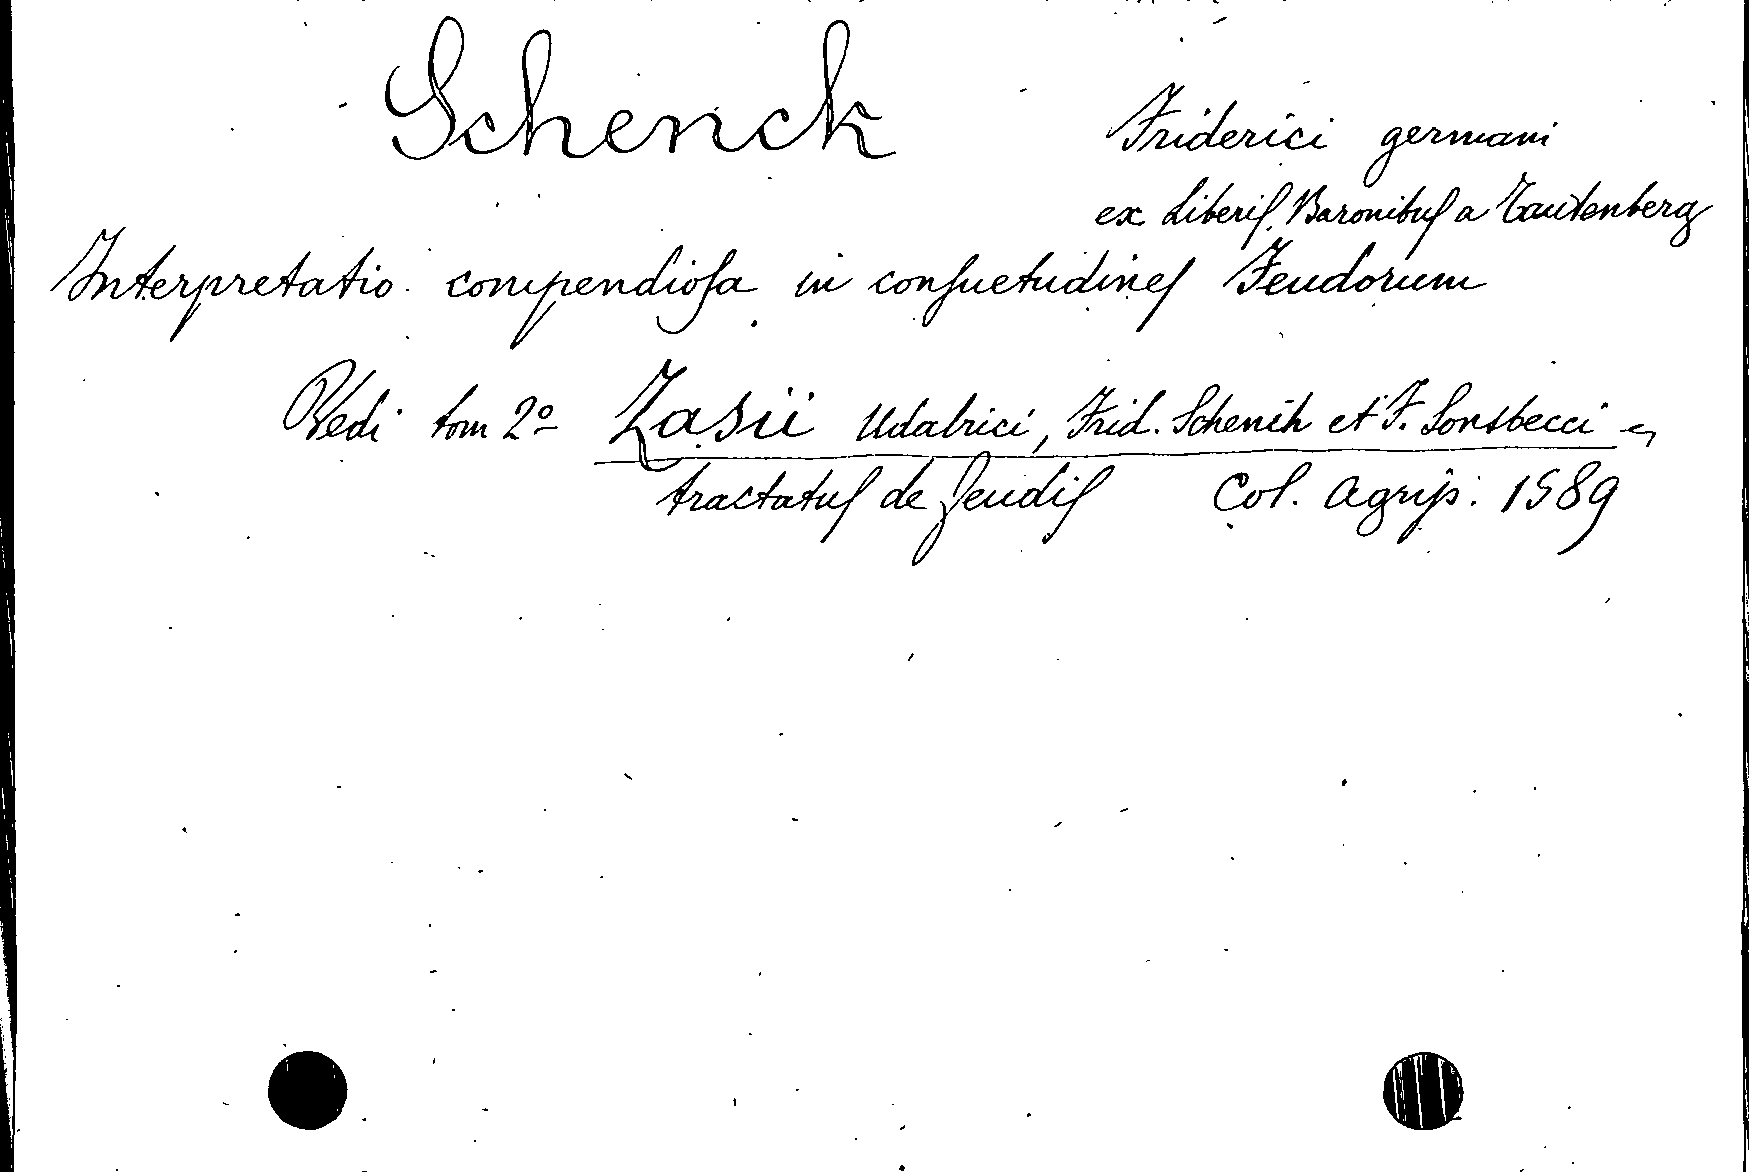 Schenck Friderici germani
ex Liberiſ Baronibuſ a Tautenberg
Interpretatio compendioſa in conſuetudineſ Feudorum
Vedi tom 2º Zasii Udalrici, Frid. Schenih et F. Sonsbecci
tractatuſ de feudiſ Col. Agrip. 1589